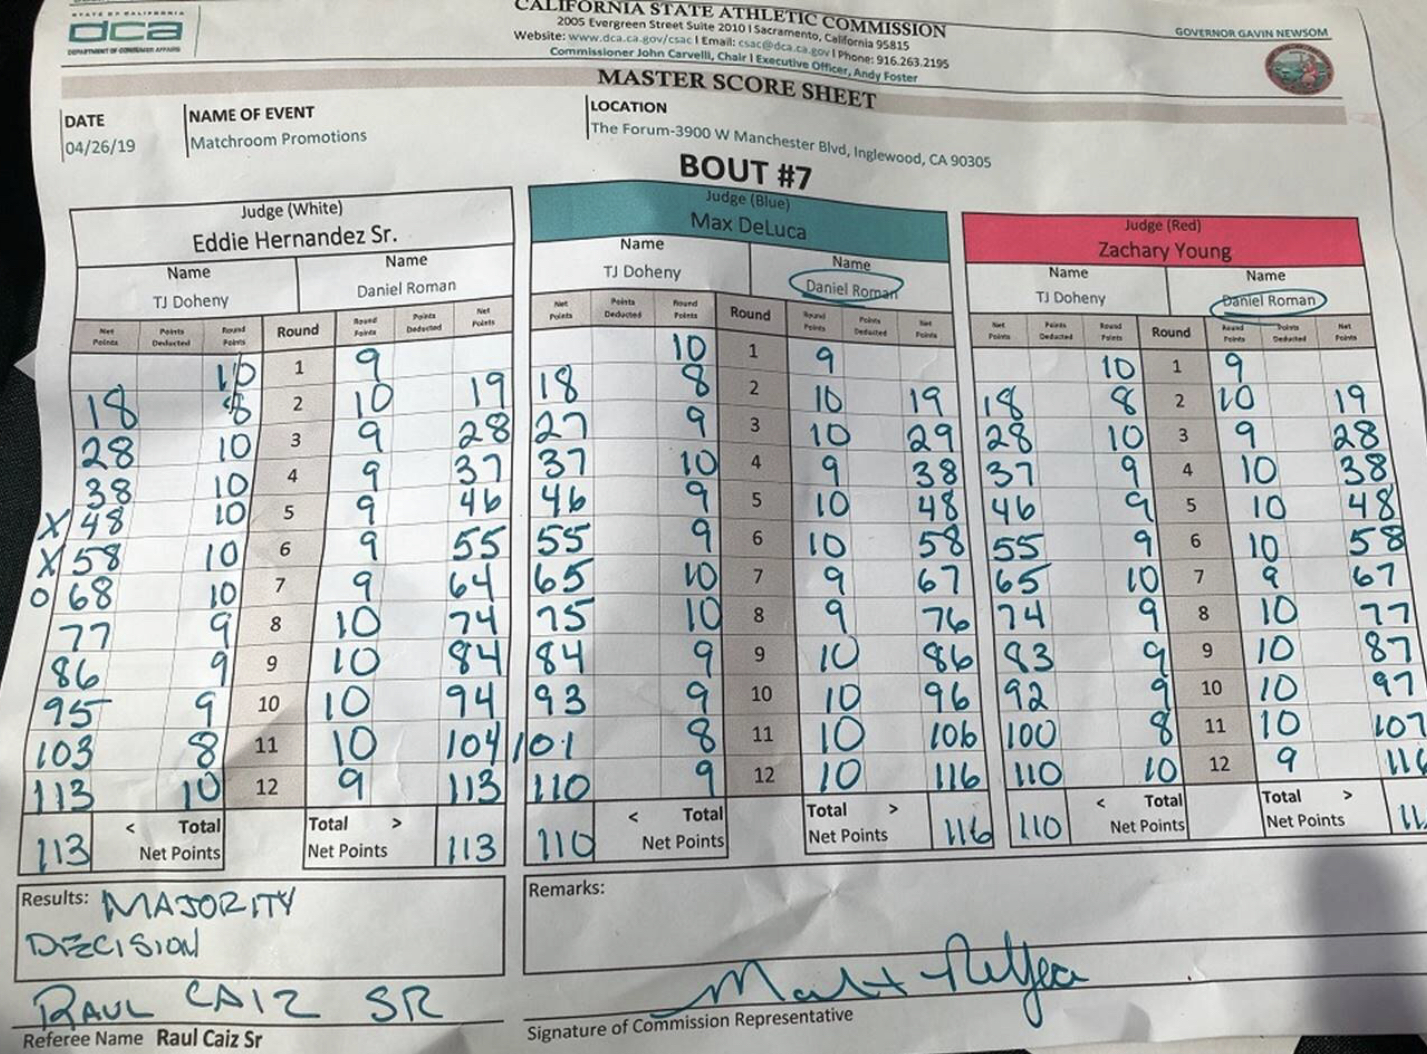 STATE OF CALIFORNIA
dca
DEPARTMENT OF CONSUMER AFFAIRS
CALIFORNIA STATE ATHLETIC COMMISSION
2005 Evergreen Street Suite 2010 | Sacramento, California 95815
Website: www.dca.ca.gov/csac | Email: csac@dca.ca.gov | Phone: 916.263.2195
Commissioner John Carvelli, Chair | Executive Officer, Andy Foster
GOVERNOR GAVIN NEWSOM
MASTER SCORE SHEET
DATE NAME OF EVENT LOCATION
04/26/19 Matchroom Promotions The Forum-3900 W Manchester Blvd, Inglewood, CA 90305
BOUT #7
Judge (White) Judge (Blue) Judge (Red)
Eddie Hernandez Sr. Max DeLuca Zachary Young
Name Name Name Name Name Name
TJ Doheny Daniel Roman TJ Doheny Daniel Roman TJ Doheny Daniel Roman
Net Points Points Deducted Round Points Round Round Points Points Deducted Net Points Net Points Points Deducted Round Points Round Round Points Points Deducted Net Points Net Points Points Deducted Round Points Round Round Points Points Deducted Net Points
10 1 9 10 1 9 10 1 9
18 8 2 10 19 18 8 2 10 19 18 8 2 10 19
28 10 3 9 28 27 9 3 10 29 28 10 3 9 28
38 10 4 9 37 37 10 4 9 38 37 9 4 10 38
X 48 10 5 9 46 46 9 5 10 48 46 9 5 10 48
X 58 10 6 9 55 55 9 6 10 58 55 9 6 10 58
O 68 10 7 9 64 65 10 7 9 67 65 10 7 9 67
77 9 8 10 74 75 10 8 9 76 74 9 8 10 77
86 9 9 10 84 84 9 9 10 86 83 9 9 10 87
95 9 10 10 94 93 9 10 10 96 92 9 10 10 97
103 8 11 10 104 101 8 11 10 106 100 8 11 10 107
113 10 12 9 113 110 9 12 10 116 110 10 12 9 116
113 < Total Net Points Total > Net Points 113 110 < Total Net Points Total > Net Points 116 110 < Total Net Points Total > Net Points 11
Results: MAJORITY
DECISION
Remarks:
RAUL CAIZ SR
Referee Name Raul Caiz Sr
Signature of Commission Representative